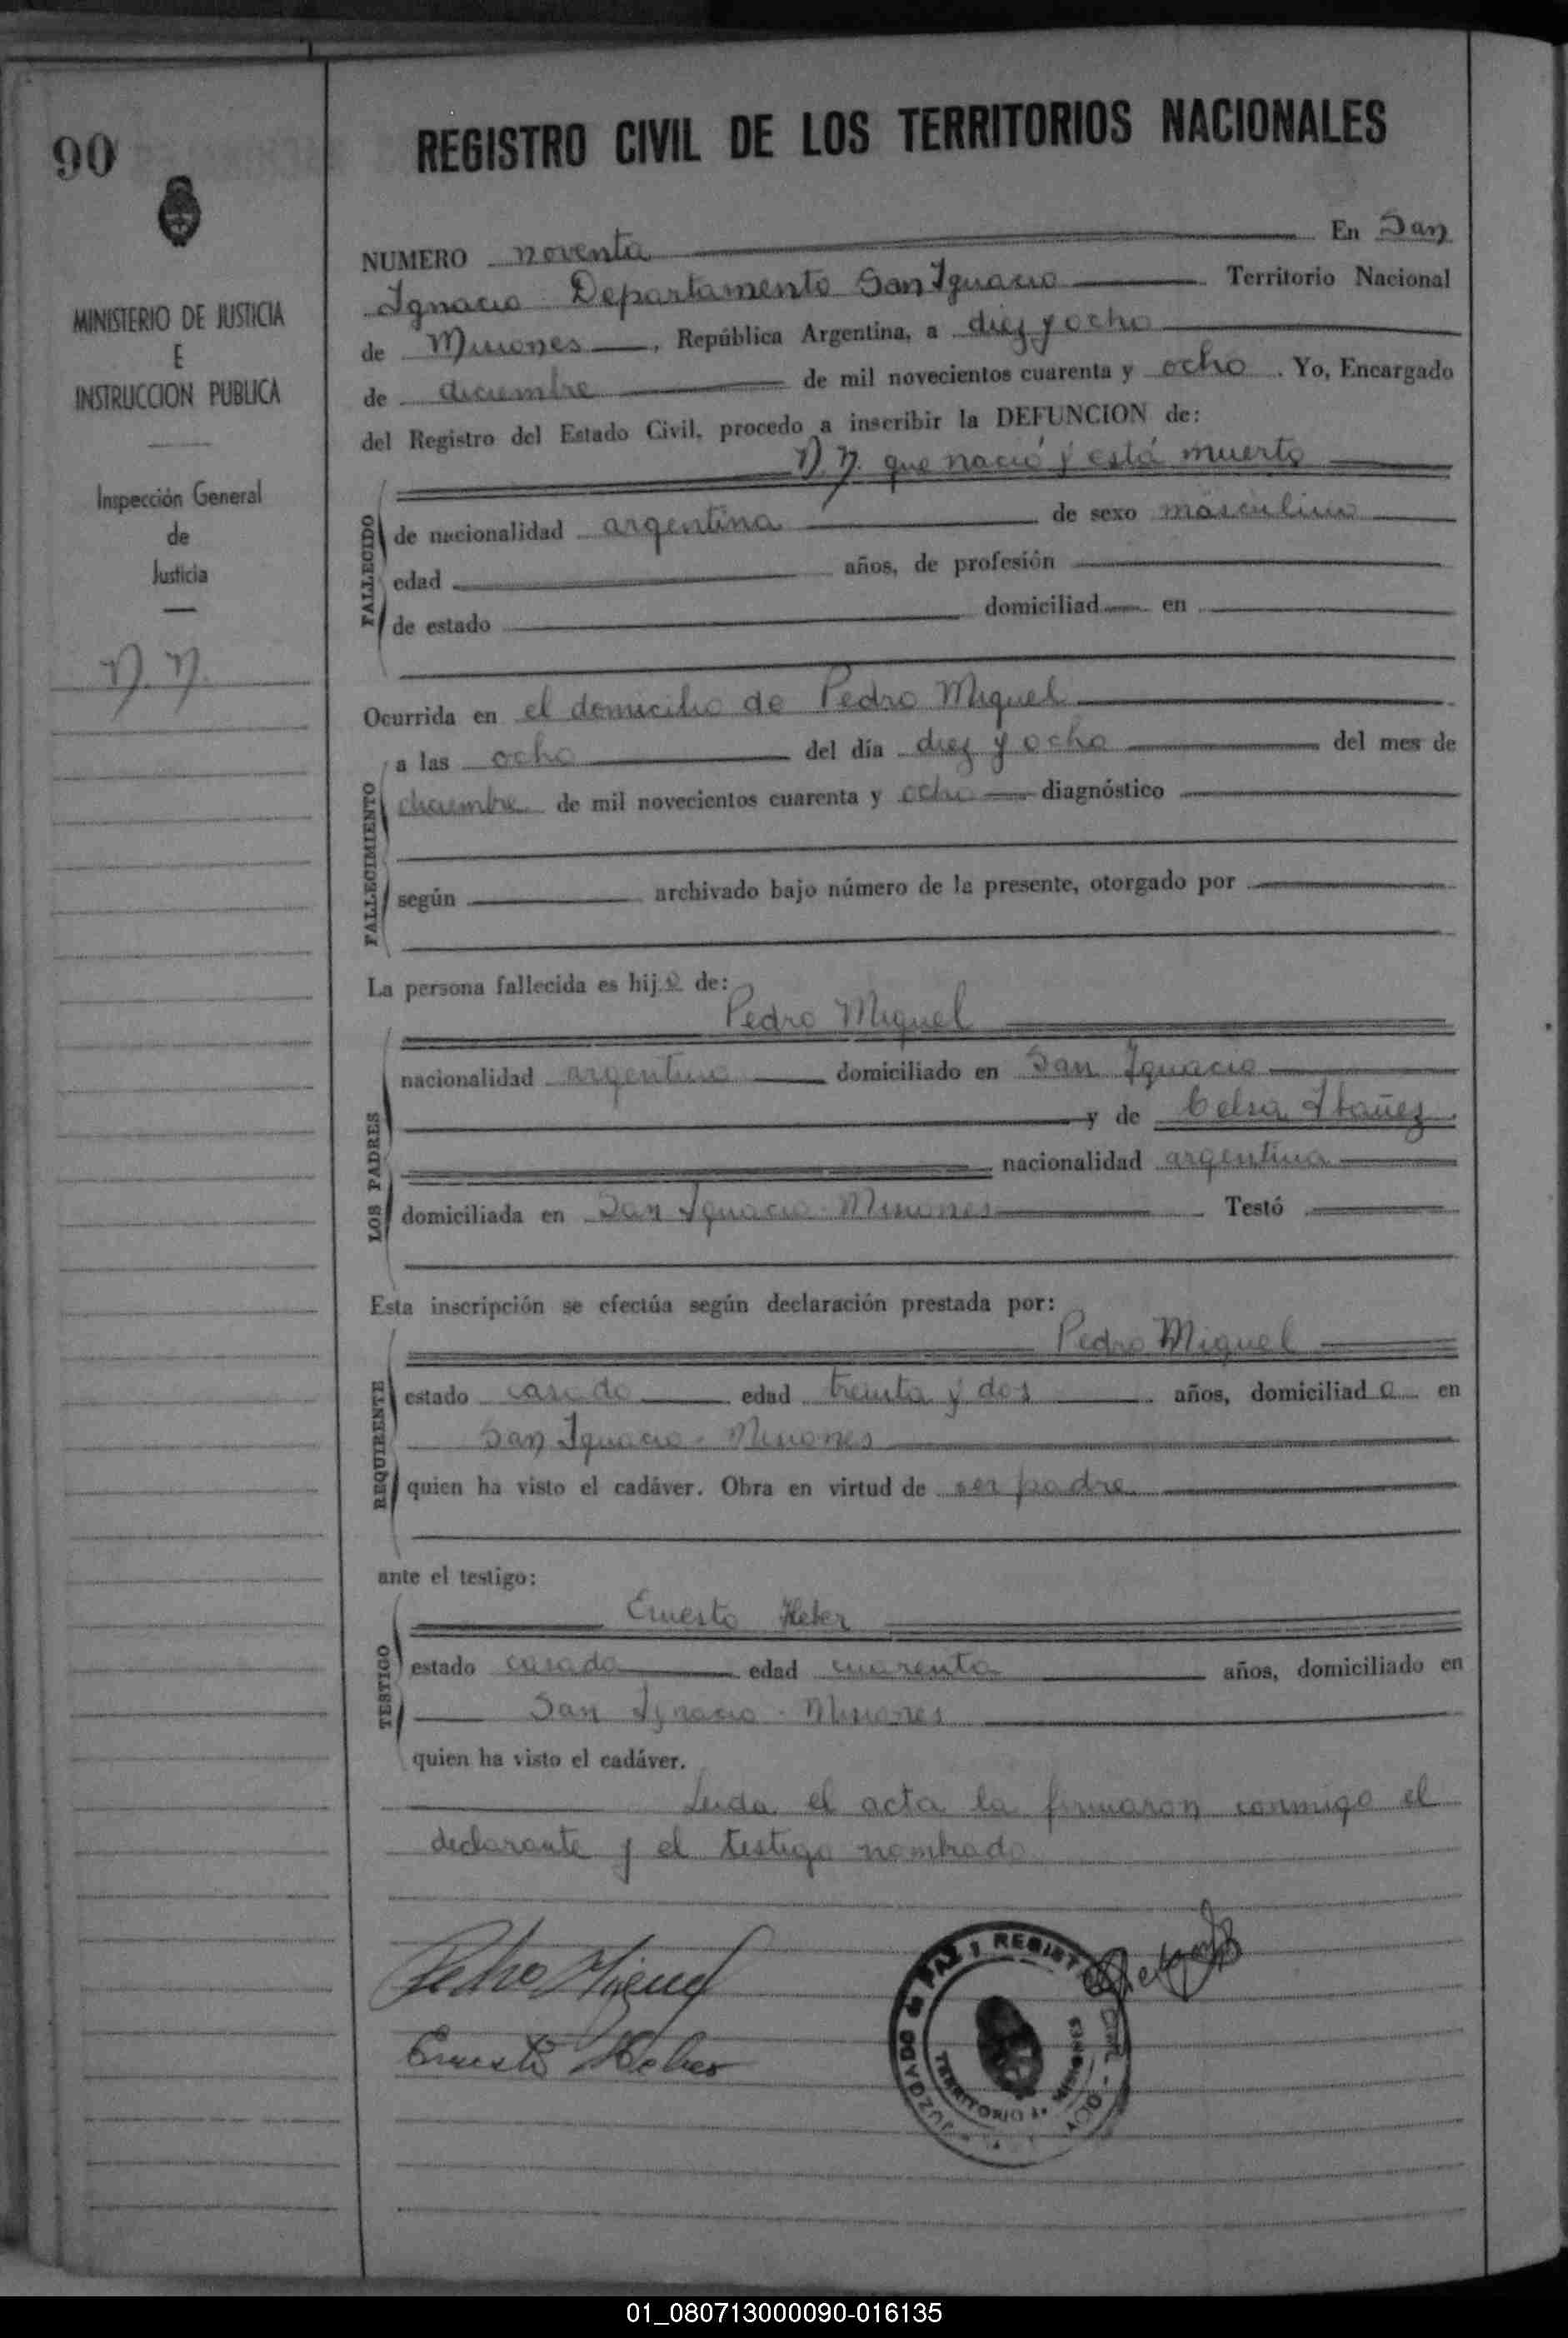 90
MINISTERIO DE JUSTICIA
E
INSTRUCCION PUBLICA
Inspección General
de
Justicia
N. N.
REGISTRO CIVIL DE LOS TERRITORIOS NACIONALES
NUMERO noventa En San
Ignacio Departamento San Ignacio Territorio Nacional
de Misiones, República Argentina, a diez y ocho
de diciembre de mil novecientos cuarenta y ocho. Yo, Encargado
del Registro del Estado Civil, procedo a inscribir la DEFUNCION de:
N. N. que nació y está muerto
FALLECIDO
de nacionalidad argentina de sexo masculino
edad años, de profesión
de estado domiciliad en
Ocurrida en el domicilio de Pedro Miguel
FALLECIMIENTO
a las ocho del día diez y ocho del mes de
diciembre de mil novecientos cuarenta y ocho diagnóstico
según archivado bajo número de la presente, otorgado por
La persona fallecida es hijo de:
LOS PADRES
Pedro Miguel
nacionalidad argentino domiciliado en San Ignacio
y de Celsa Ibañez
nacionalidad argentina
domiciliada en San Ignacio - Misiones Testó
Esta inscripción se efectúa según declaración prestada por:
REQUIRENTE
Pedro Miguel
estado casado edad treinta y dos años, domiciliado en
San Ignacio - Misiones
quien ha visto el cadáver. Obra en virtud de ser padre
ante el testigo:
TESTIGO
Ernesto Heber
estado casado edad cuarenta años, domiciliado en
San Ignacio - Misiones
quien ha visto el cadáver.
Leida el acta la firmaron conmigo el
declarante y el testigo nombrado
Pedro Miguel
Ernesto Heber
JUZGADO de PAZ y REGISTRO CIVIL
TERRITORIO MISIONES
01_080713000090-016135